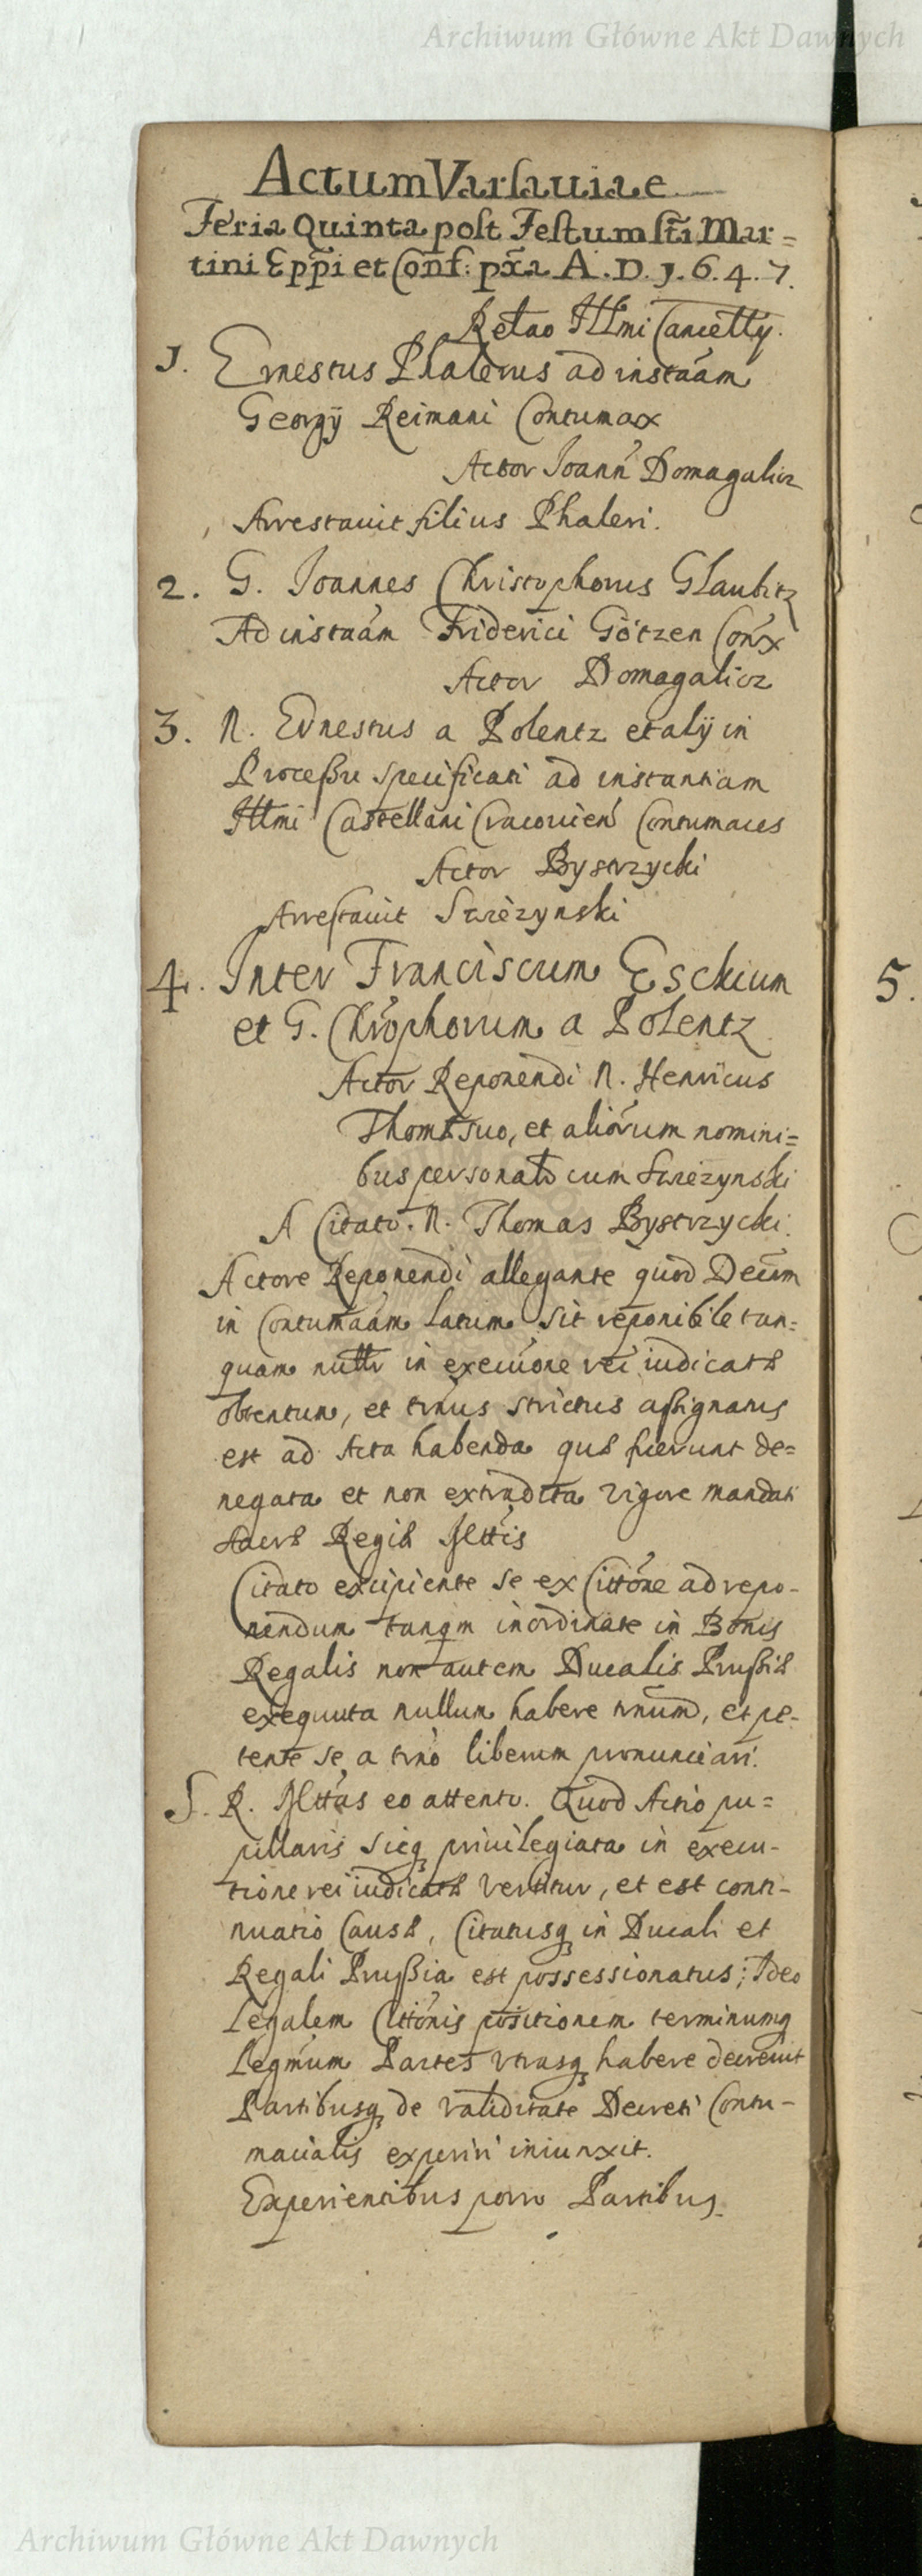 Archiwum Główne Akt Dawnych
Actum Varsauiae
Feria Quinta post Festum sti Mar=
tini Eppi et Conf: pxa A. D. 1. 6. 4. 7.
Retao Illmi Cancelly.
1. Ernestus Phalerus ad instaam
Georgÿ Reimani Contumax
Actor Joann Domagalicz
Arrestauit filius Phaleri.
2. G. Joannes Christophorus Glaubitz
Ad instaam Friderici Götzen Conx
Actor Domagalicz
3. N. Ernestus a Polentz et alÿ in
Processu specificati ad instantiam
Illmi Castellani Cracouien Contumaces
Actor Bystrzycki
Arrestauit Swiezynski
4. Inter Franciscum Eschium
et G. Chrophorum a Polentz
Actor Reponendi N. Henricus
Thomæ suo, et aliorum nomini=
bus personato cum Swiezynski
A Citato. N. Thomas Bystrzycki.
Actore Reponendi allegante quod Decum
in Contumaam latum sit reponibile tan=
quam nullr in executione rei iudicatæ
obtentum, et trnus strictus assignatus
est ad Acta habenda quæ fuerunt de=
negata et non extradita vigore mandati
Sacræ Regiæ Mttis
Citato excipiente se ex Cittone ad repo-
nendum tanqm inordinate in Bonis
Regalis non autem Ducalis Prussiæ
exequuta nullum habere trnum, et pe-
tente se a trno liberum pronunciari.
S. R. Mttas eo attento. Quod Actio pu=
pillaris sicq priuilegiata in execu-
tione rei iudicatæ vertitur, et est conti-
nuatio Causæ, Citatusq in Ducali et
Regali Prussia est possessionatus; Ideo
Legalem Cittonis positionem terminumq
Legmum Partes vtrasq habere decreuit
Partibusq de validitate Decreti Contu-
macialis experiri iniunxit.
Experientibus porro Partibus.
5.
Archiwum Główne Akt Dawnych